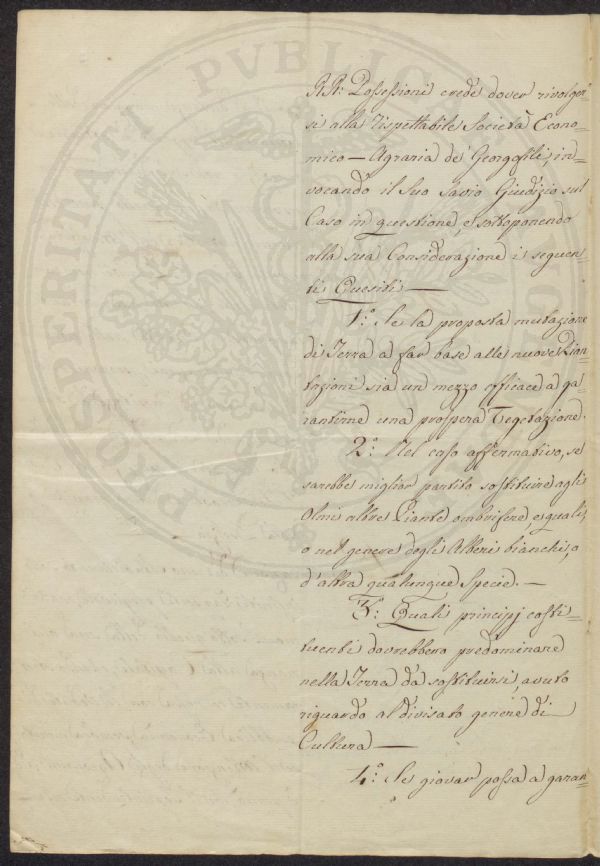 PROSPERITATI PVBLICAE
RR: Possessioni credè dover rivolger=
si alla rispettabile Società Econo=
mico — Agraria de' Georgofili, in=
vocando il suo savio Giudizio sul
Caso in questione, e sottoponendo
alla sua Considerazione i seguen=
ti Quesiti —
1.º Se la proposta mutazione
di Terra a far base alle nuove Pian=
tazioni sia un mezzo efficace a ga=
rantirne una prospera Vegetazione.
2.º Nel caso affermativo, se
sarebbe miglior partito sostituire agli
Olmi altre Piante ombrifere, e quali,
o nel genere degli Alberi bianchi, o
d'altra qualunque Specie. —
3.º Quali principj costi=
tuenti dovrebbero predominare
nella Terra da sostituirsi, avuto
riguardo al divisato genere di
Cultura —
4.º Se giovar possa a garan=